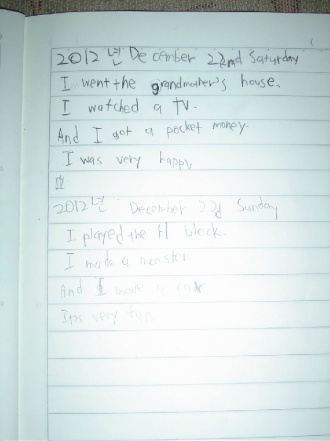 2012년 December 22nd Saturday
I went the grandmather's house.
I watched a TV.
And I got a pocket money.
I was very happy
2012년 December 23d Sunday
I played the H block.
I made a monster
And I made a car
It's very fun